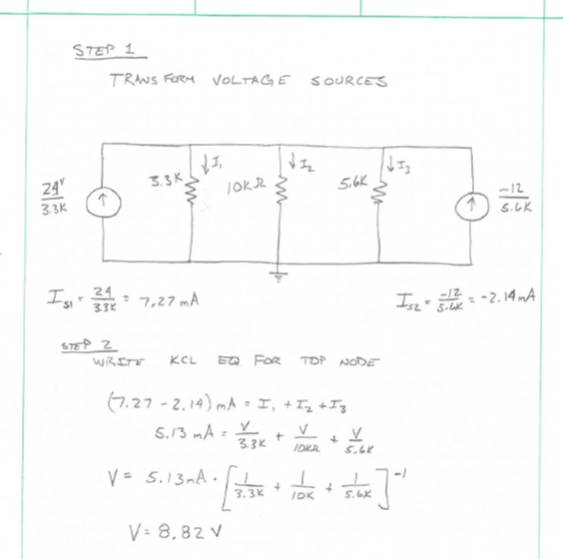 STEP 1
TRANSFORM VOLTAGE SOURCES
24V
3.3K
3.3K
↓I₁
10KΩ
↓I₂
5.6K
↓I₃
-12
5.6K
I_S1 = 24/3.3K = 7,27 mA
I_S2 = -12/5.6K = -2.14mA
STEP 2
WRITE KCL EQ FOR TOP NODE
(7.27 - 2.14) mA = I₁ + I₂ + I₃
5.13 mA = V/3.3K + V/10KΩ + V/5.6K
V = 5.13mA · [1/3.3K + 1/10K + 1/5.6K]⁻¹
V = 8.82 V